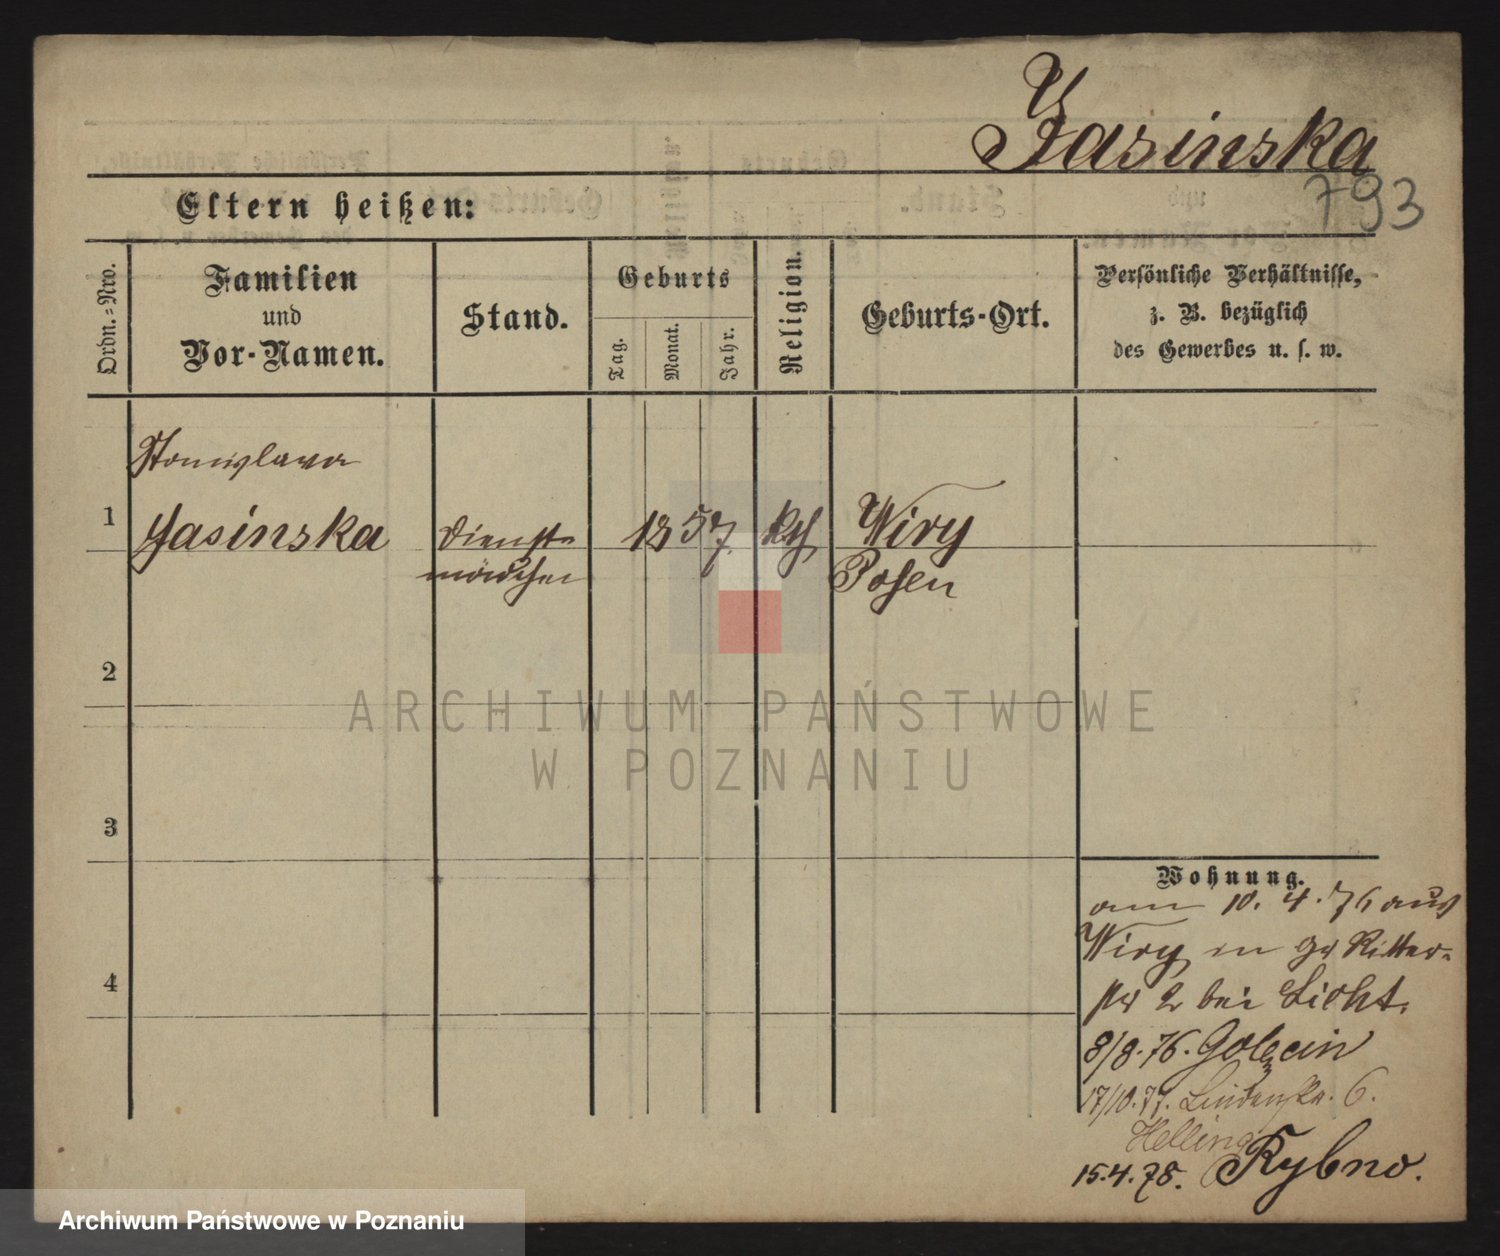 Jasinska
793
Eltern heißen:
Ordn.-Nro.
Familien
und
Vor-Namen.
Stand.
Geburts
Tag.
Monat.
Jahr.
Religion.
Geburts-Ort.
Persönliche Verhältnisse,
z. B. bezüglich
des Gewerbes u. s. w.
Stanislawa
1
Jasinska
Dienst-
mädchen
18 57.
kth
Wiry
Posen
2
3
4
Wohnung.
am 10. 4. 76 aus
Wiry in gr Ritter-
str 2 bei Licht.
8/8. 76. Golęcin
17/10. 77. Lindenstr. 6.
Helling
15.4.78. Rybno.
ARCHIWUM PAŃSTWOWE
W POZNANIU
Archiwum Państwowe w Poznaniu